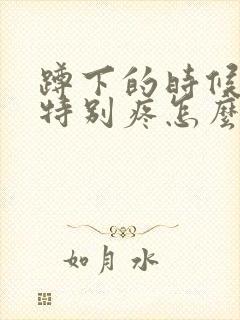 蹲下的時候
特别疼怎麼
如月水